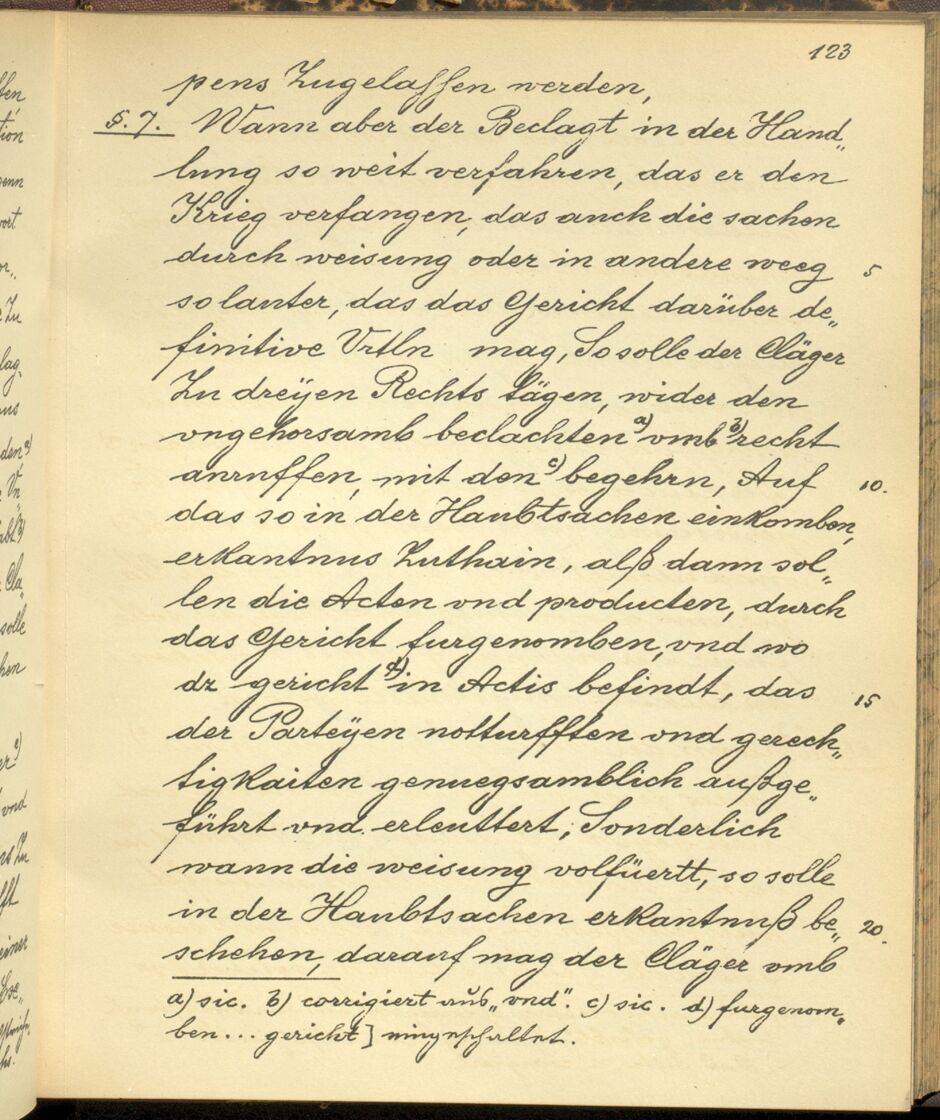 123
pens Zugelassen werden,
§. 7. Wann aber der Beclagt in der Hand„
lung so weit verfahren, das er den
Krieg verfangen, das auch die sachen
durch weisung oder in andere weeg 5
so lauter, das das Gericht darüber de„
finitive Vrtln mag, So solle der Cläger
Zu dreÿen Rechts tägen, wider den
vngehorsamb beclachten a) vmb b) recht
anruffen, mit den c) begehrn, Auf 10.
das so in der Haubtsachen einkomben,
erkantnus Zuthain, alß dann sol„
len die Acten vnd producten, durch
das Gericht furgenomben, vnd wo
dz gericht d) in Actis befindt, das 15
der Parteÿen notturfften vnd gerech„
tigkaiten genuegsamblich außge„
führt vnd erleuttert, Sonderlich
wann die weisung volfüertt, so solle
in der Haubtsachen erkantnuß be„ 20.
schehen, darauf mag der Cläger vmb
a) sic. b) corrigiert aus „vnd“. c) sic. d) furgenom„
ben... gericht] eingeschaltet.